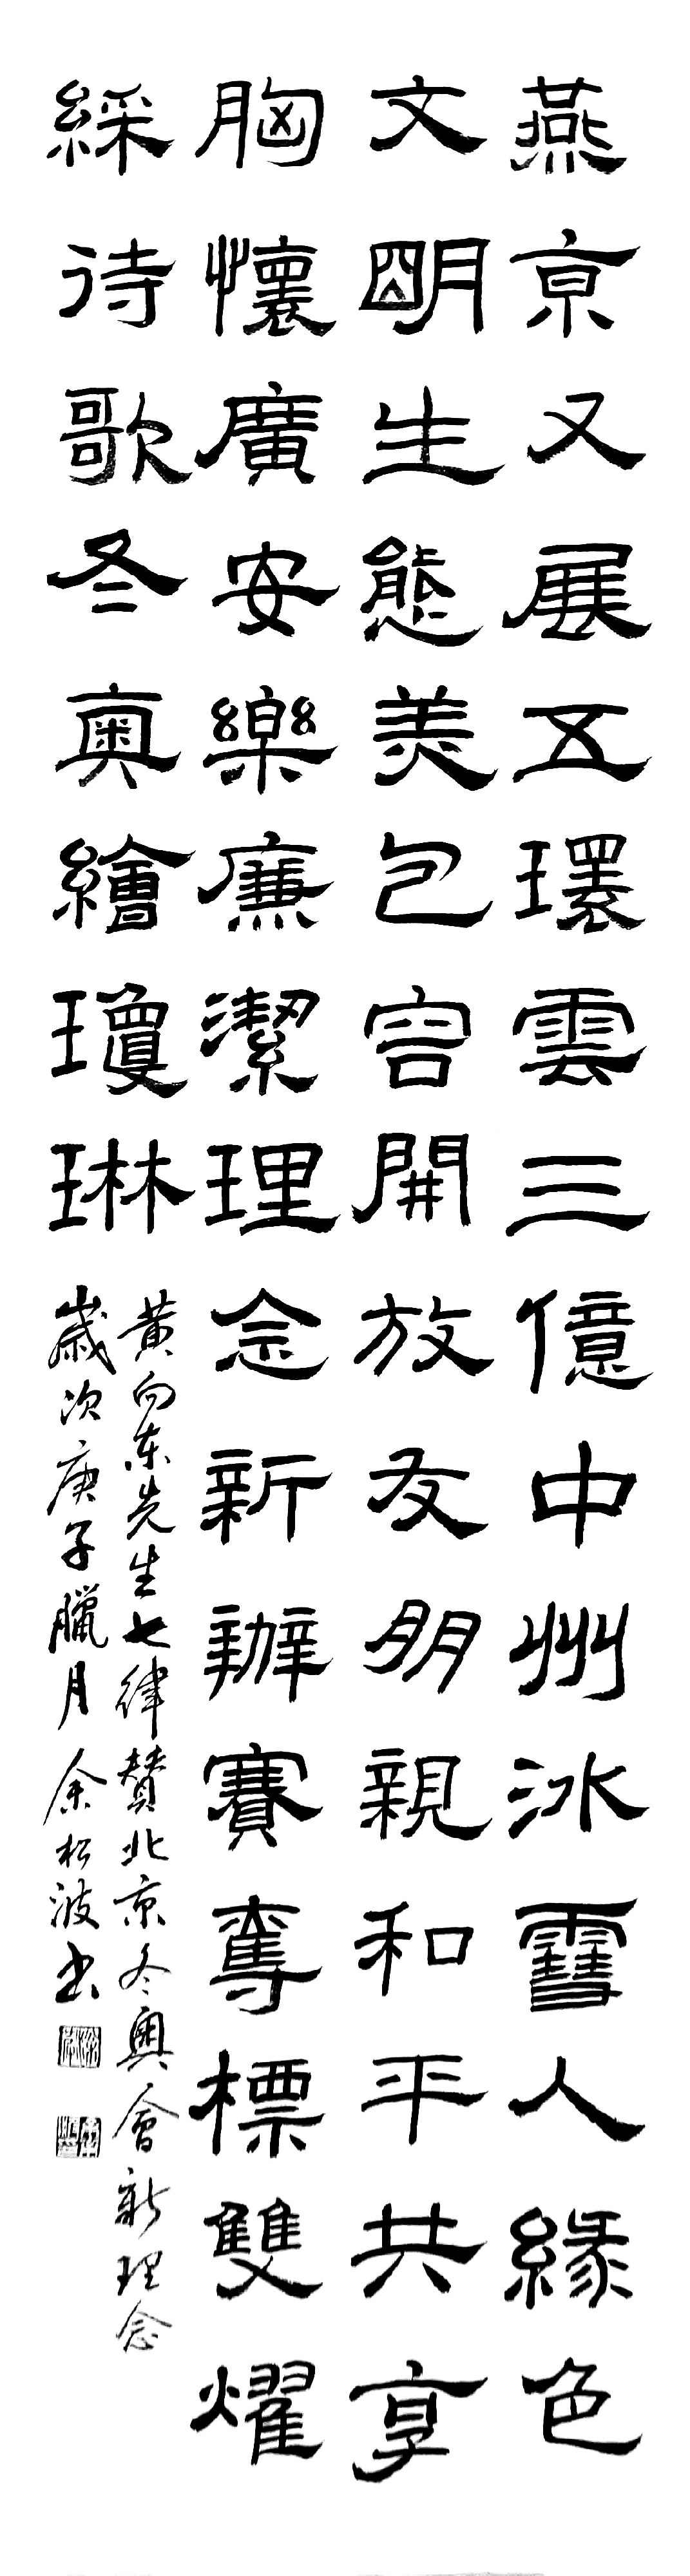 燕京又展五環雲三億中州冰雪人綠色
文明生態美包容開放友朋親和平共享
胸懷廣安樂廉潔理念新辦賽奪標雙燿
綵待歌冬奧繪瓊琳
黄向东先生七律贊北京冬奧會新理念
歲次庚子臘月余松波书